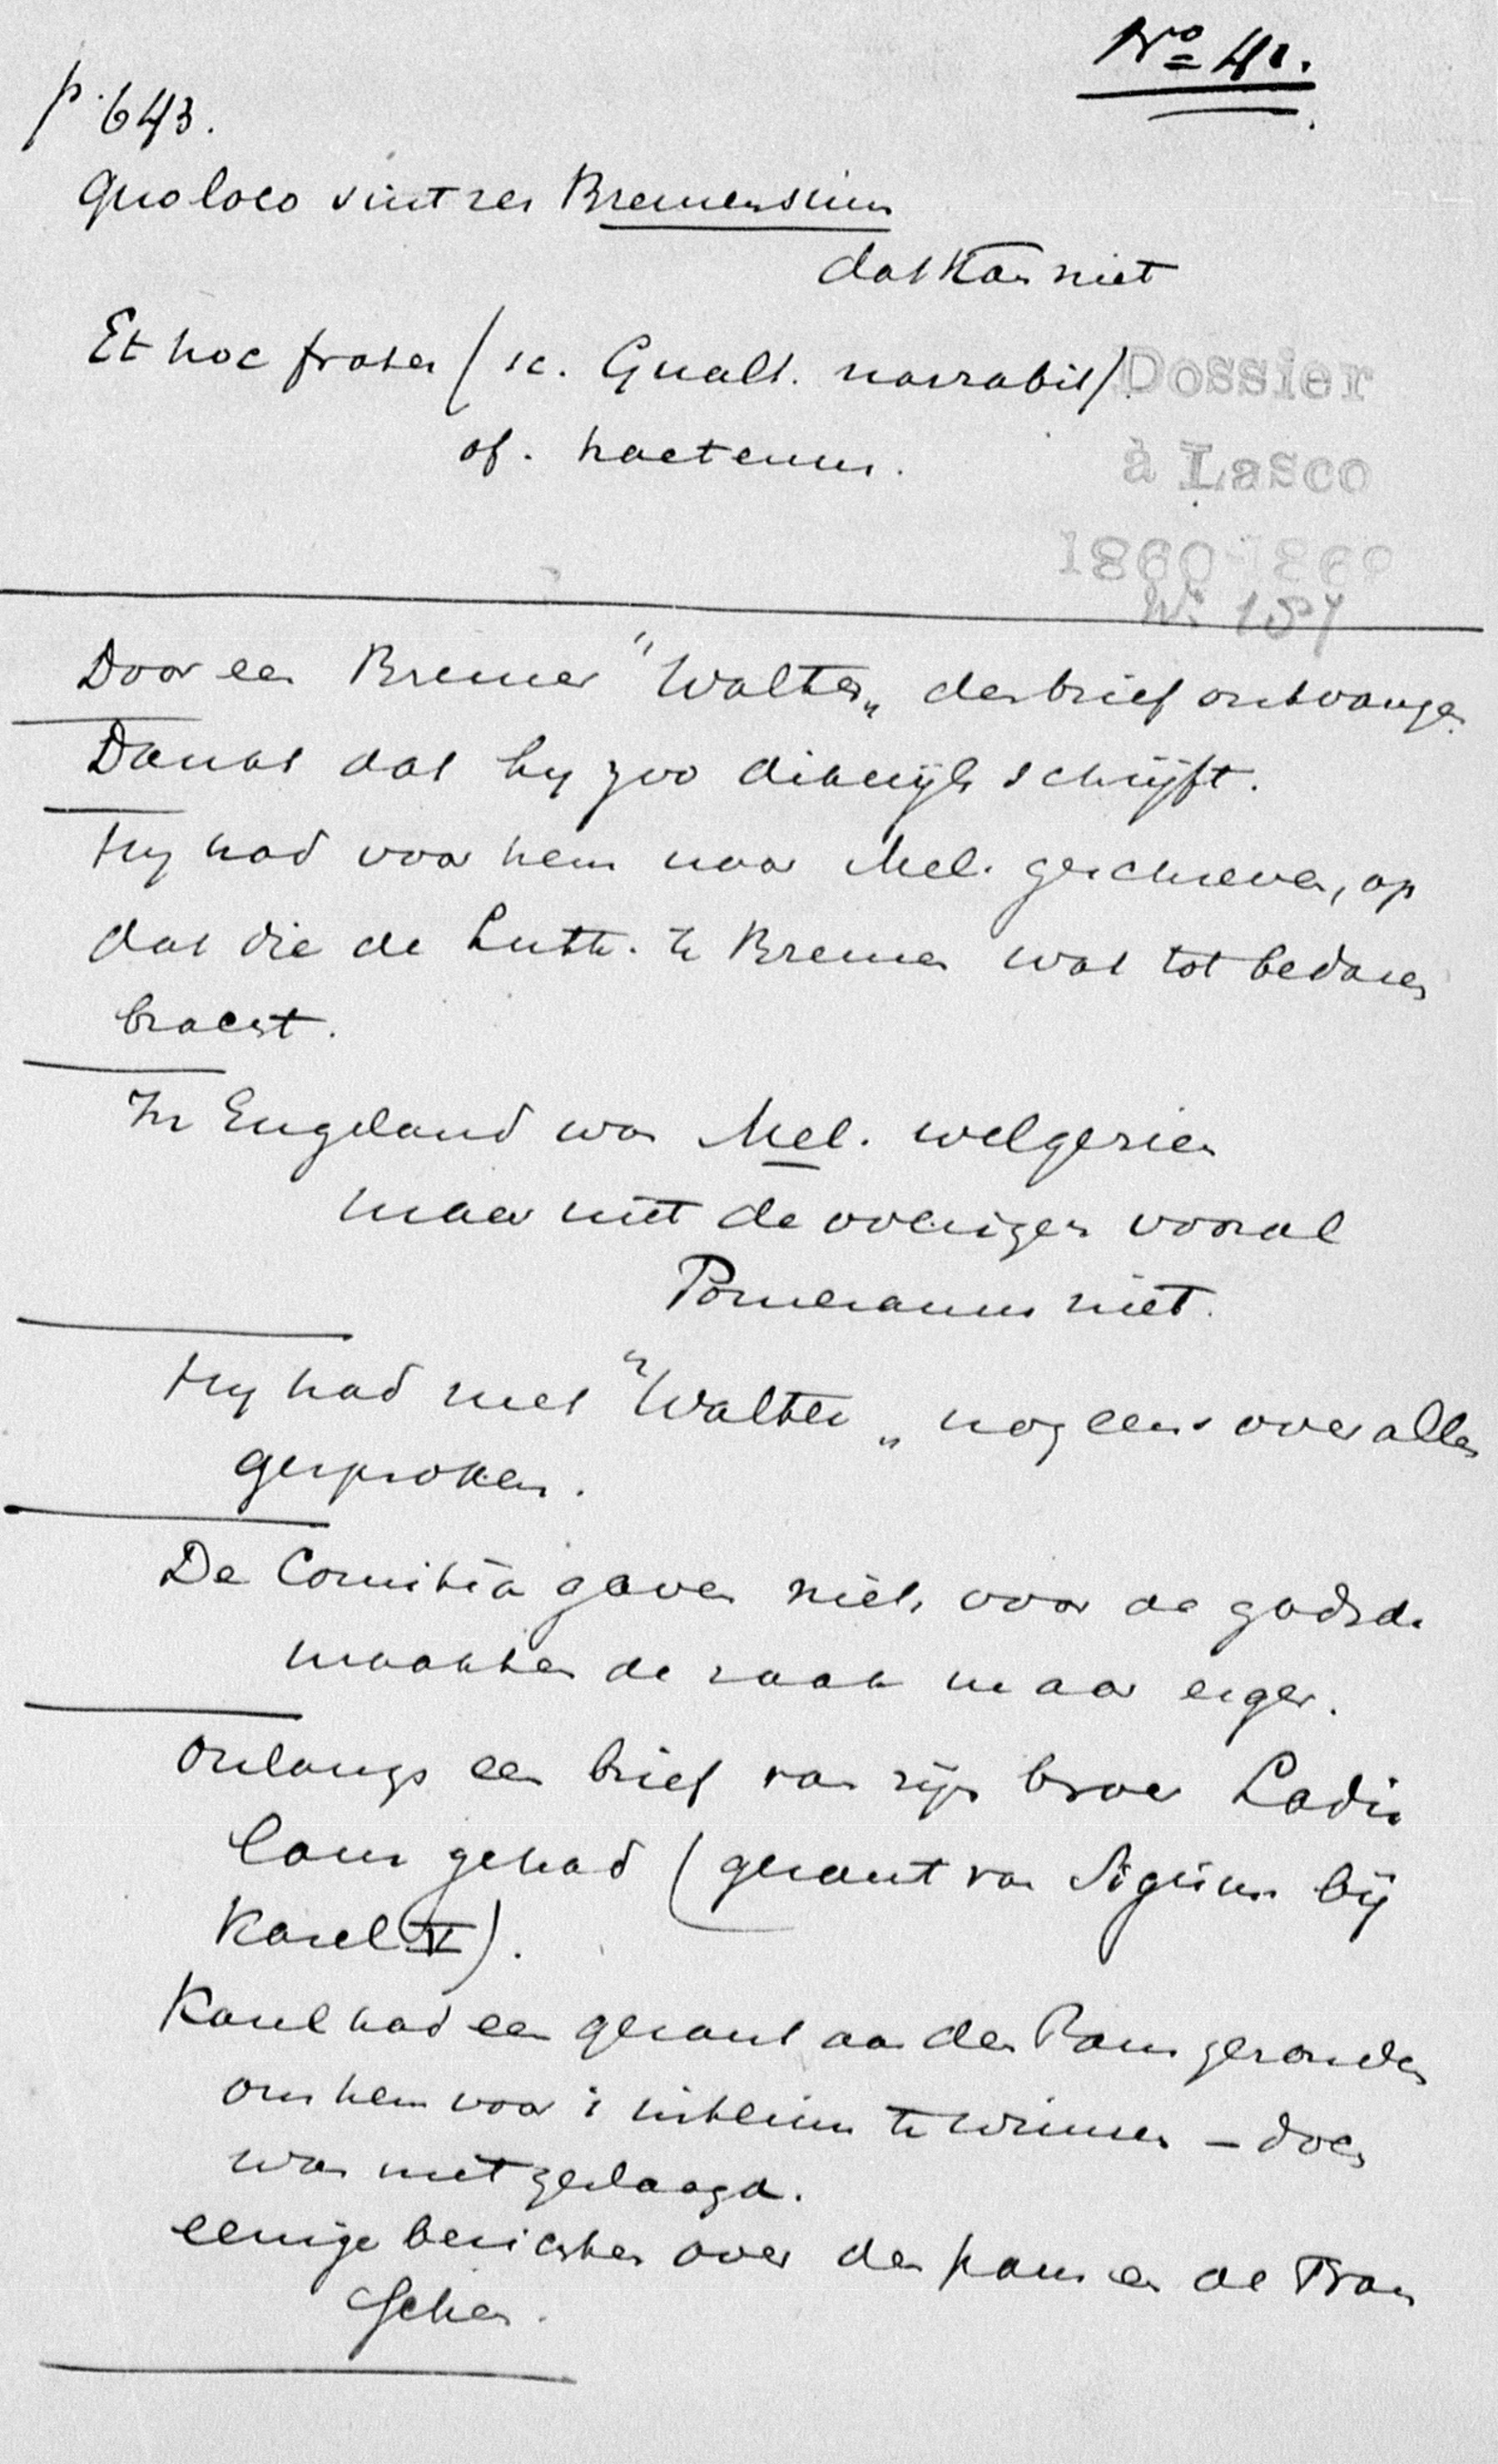 No 41.
p. 643.
Quo loco sint res Bremensium
dat kan niet
Et hoc frater (sc. Gualt. narrabit)
of. hactenus.
Dossier
à Lasco
1860-1869
No 187
Door een Bremer "Walter„ den brief ontvangen.
Dankt dat hy zoo dikwijls schrijft.
Hy had voor hem naar Mel. geschreven, op
dat die de Luth. te Bremen wat tot bedaren
bracht.
In Engeland was Mel. welgezien
maar niet de overigen vooral
Pomeranus niet.
Hy had met "Walter„ nog eens over alles
gesproken.
De Comitia gaven niets voor de godsd.
maakten de zaak maar erger.
Onlangs een brief van zijn broer Ladis
laus gehad (gezant van Sigism. bij
Karel V).
Karel had een gezant aan den Paus gezonden
om hem voor 't interim te winnen – doch
was niet geslaagd.
eenige berichten over den paus en de Fran
schen.